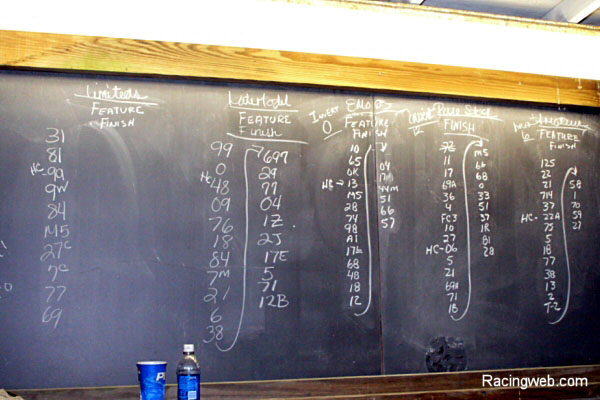 Limiteds
FEATURE
FINISH
31
81
HC 99
9W
84
M5
27C
7C
77
69
FEATURE
Finish
99
0
HC 48
09
76
18
84
7M
21
6
38
7697
29
77
04
1Z
2J
17E
5
71
12B
INVERT
0
FEATURE
FINISH
10
65
0K
HC → 13
M5
28
74
98
A1
17E
68
48
18
12
04
17
44M
51
66
57
Pure Stock
FINISH
11
17
69A
36
4
FC3
10
27
HC-06
5
21
69A
71
1B
M5
66
68
0
33
51
37
1R
81
28
FEATURE
FINISH
125
22
21
714
37
HC- 22A
75
5
18
77
38
13
2
T-2
58
1
70
59
27
Racingweb.com